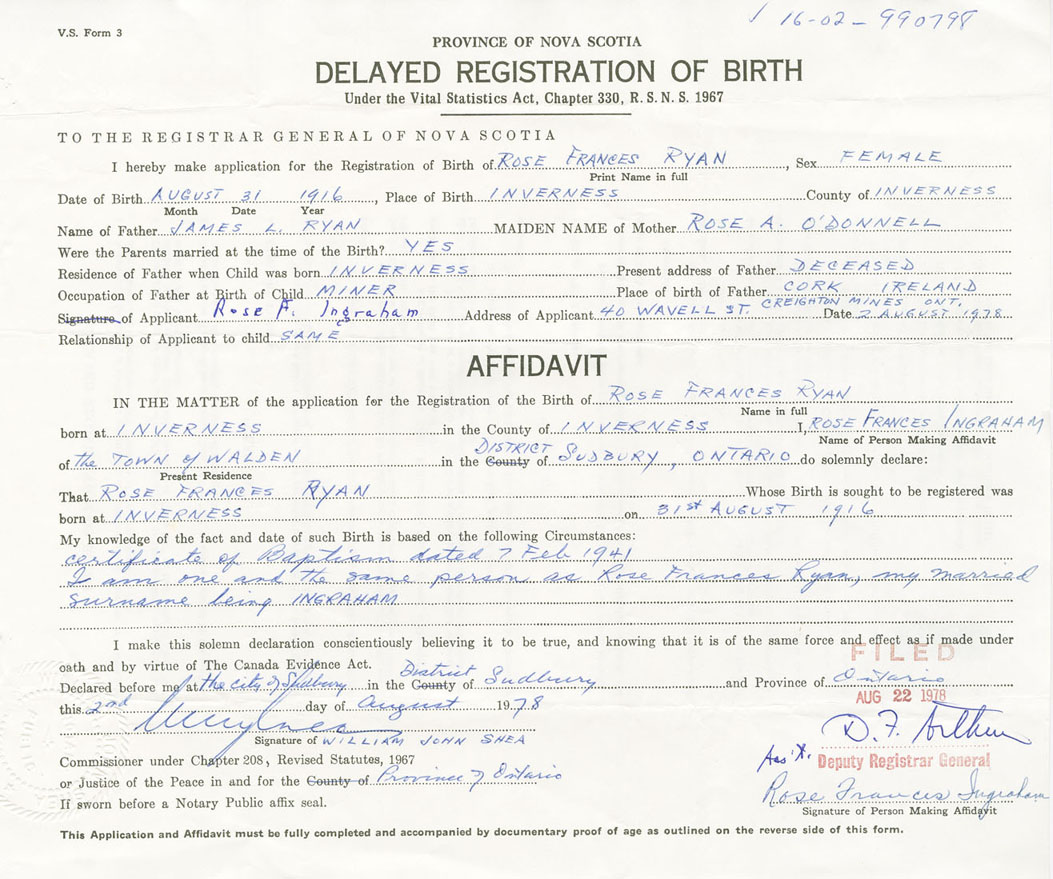 16-02-990798
V.S. Form 3
PROVINCE OF NOVA SCOTIA
DELAYED REGISTRATION OF BIRTH
Under the Vital Statistics Act, Chapter 330, R. S. N. S. 1967
TO THE REGISTRAR GENERAL OF NOVA SCOTIA
I hereby make application for the Registration of Birth of ROSE FRANCES RYAN, Sex FEMALE
Print Name in full
Date of Birth AUGUST 31 1916, Place of Birth INVERNESS County of INVERNESS
Month Date Year
Name of Father JAMES L. RYAN MAIDEN NAME of Mother ROSE A. O'DONNELL
Were the Parents married at the time of the Birth? YES
Residence of Father when Child was born INVERNESS Present address of Father DECEASED
Occupation of Father at Birth of Child MINER Place of birth of Father CORK IRELAND
Signature of Applicant Rose F. Ingraham Address of Applicant 40 WAVELL ST. CREIGHTON MINES ONT. Date 2 AUGUST 1978
Relationship of Applicant to child SAME
AFFIDAVIT
IN THE MATTER of the application for the Registration of the Birth of ROSE FRANCES RYAN
Name in full
born at INVERNESS in the County of INVERNESS I, ROSE FRANCES INGRAHAM
Name of Person Making Affidavit
of the TOWN of WALDEN in the County DISTRICT of SUDBURY, ONTARIO do solemnly declare:
Present Residence
That ROSE FRANCES RYAN Whose Birth is sought to be registered was
born at INVERNESS on 31st AUGUST 1916
My knowledge of the fact and date of such Birth is based on the following Circumstances:
certificate of Baptism dated 7 Feb 1941
I am one and the same person as Rose Frances Ryan, my married
surname being INGRAHAM
I make this solemn declaration conscientiously believing it to be true, and knowing that it is of the same force and effect as if made under
oath and by virtue of The Canada Evidence Act.
FILED
Declared before me at the city of Sudbury in the County District of Sudbury and Province of Ontario
AUG 22 1978
this 2nd day of August 1978
Signature of WILLIAM JOHN SHEA
Commissioner under Chapter 208, Revised Statutes, 1967
Deputy Registrar General
or Justice of the Peace in and for the County of Province of Ontario
Rose Frances Ingraham
If sworn before a Notary Public affix seal.
Signature of Person Making Affidavit
This Application and Affidavit must be fully completed and accompanied by documentary proof of age as outlined on the reverse side of this form.